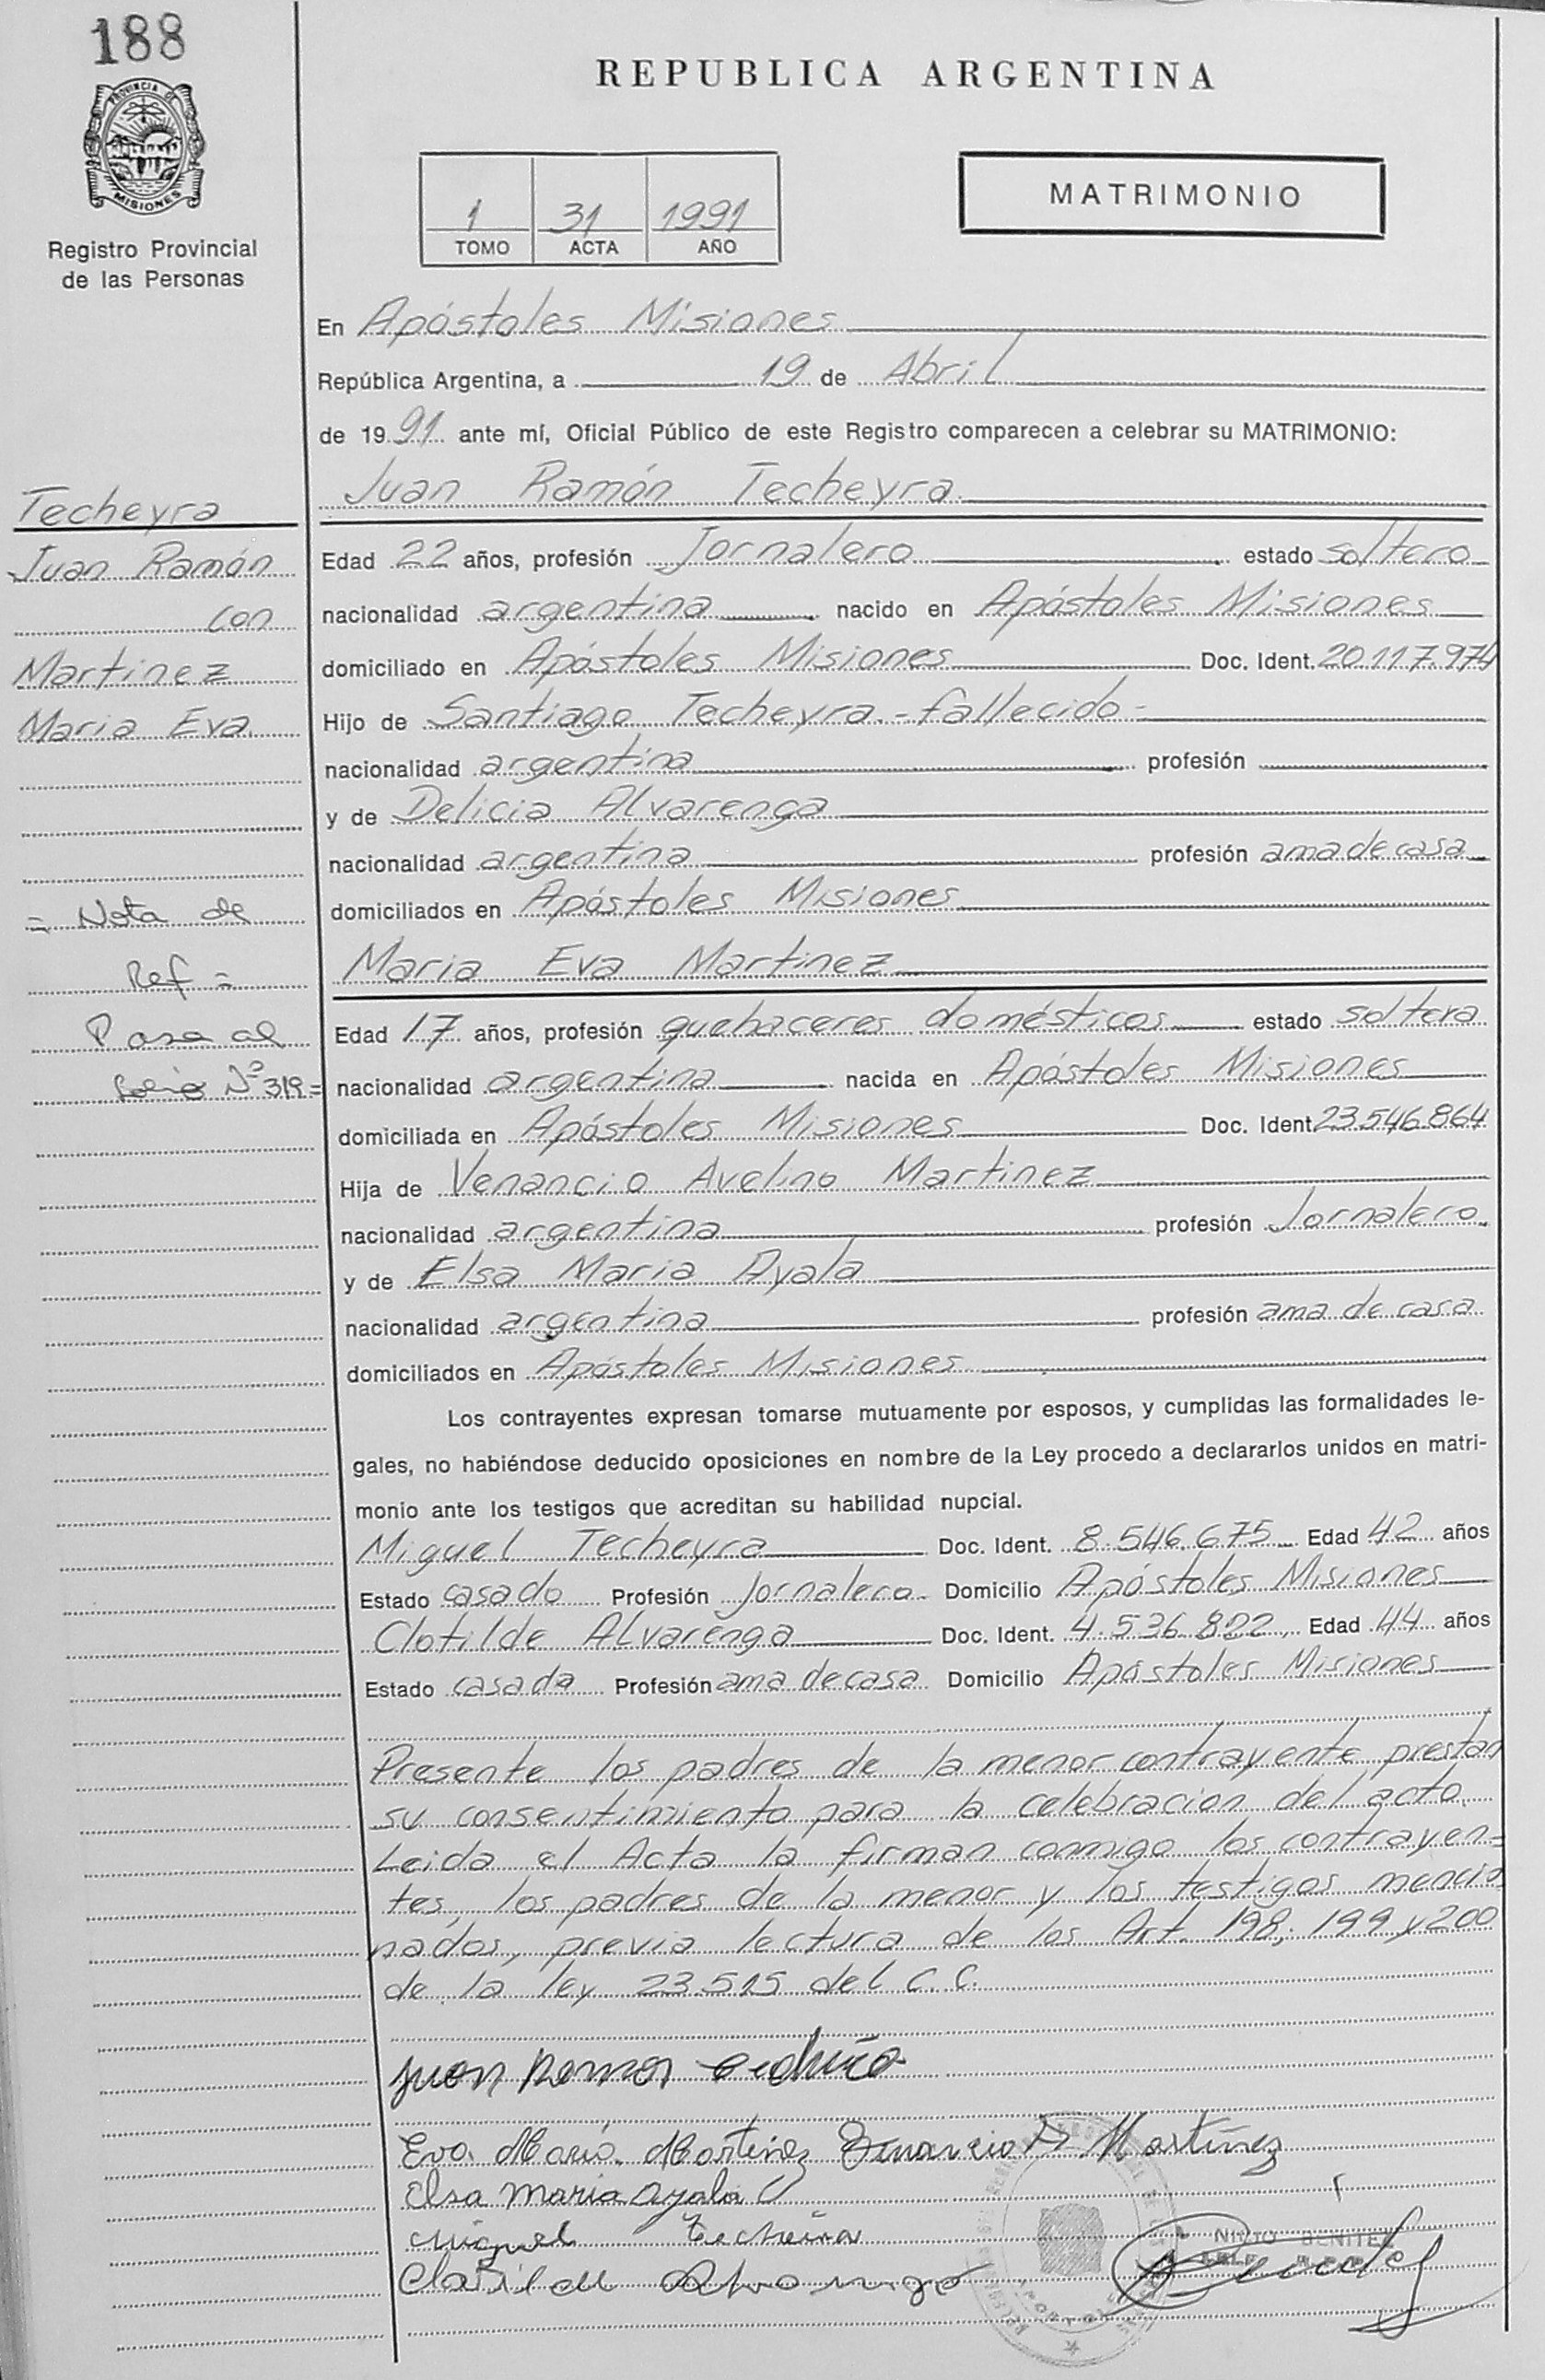 188
PROVINCIA DE
MISIONES
Registro Provincial
de las Personas
REPUBLICA ARGENTINA
1 31 1991
TOMO ACTA AÑO
MATRIMONIO
En Apóstoles Misiones
República Argentina, a 19 de Abril
de 1991 ante mí, Oficial Público de este Registro comparecen a celebrar su MATRIMONIO:
Juan Ramón Techeyra
Techeyra
Juan Ramón
con
Martinez
Maria Eva
= Nota de
Ref =
Pasa al
Folio Nº 319=
Edad 22 años, profesión Jornalero estado soltero
nacionalidad argentina nacido en Apóstoles Misiones
domiciliado en Apóstoles Misiones Doc. Ident. 20.117.974
Hijo de Santiago Techeyra.-fallecido-
nacionalidad argentina profesión
y de Delicia Alvarenga
nacionalidad argentina profesión ama de casa
domiciliados en Apóstoles Misiones
Maria Eva Martinez
Edad 17 años, profesión quehaceres domésticos estado soltera
nacionalidad argentina nacida en Apóstoles Misiones
domiciliada en Apóstoles Misiones Doc. Ident. 23.546.864
Hija de Venancio Avelino Martinez
nacionalidad argentina profesión Jornalero
y de Elsa Maria Ayala
nacionalidad argentina profesión ama de casa
domiciliados en Apóstoles Misiones
Los contrayentes expresan tomarse mutuamente por esposos, y cumplidas las formalidades le-
gales, no habiéndose deducido oposiciones en nombre de la Ley procedo a declararlos unidos en matri-
monio ante los testigos que acreditan su habilidad nupcial.
Miguel Techeyra Doc. Ident. 8.546.675 Edad 42 años
Estado casado Profesión Jornalero Domicilio Apóstoles Misiones
Clotilde Alvarenga Doc. Ident. 4.536.822, Edad 44 años
Estado casada Profesión ama de casa Domicilio Apóstoles Misiones
Presente los padres de la menor contrayente prestan
su consentimiento para la celebracion del acto.
Leida el Acta la firman conmigo los contrayen=
tes, los padres de la menor y los testigos mencio
nados, previa lectura de los Art. 198, 199 y 200
de la ley 23.515 del C.C.
Juan Ramon
Eva Maria Martinez Venancio A Martinez
Elsa Maria Ayala
Miguel Techeira
Clotilde Alvarenga
BENITEZ